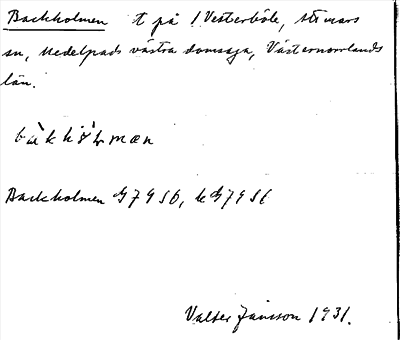 Backholmen t på 1 Vesterböle, Stimars
sn, Medelpads västra domsaga, Västernorrlands
län.
Backholmen G7956, kG7956
Valter Jansson 1931.